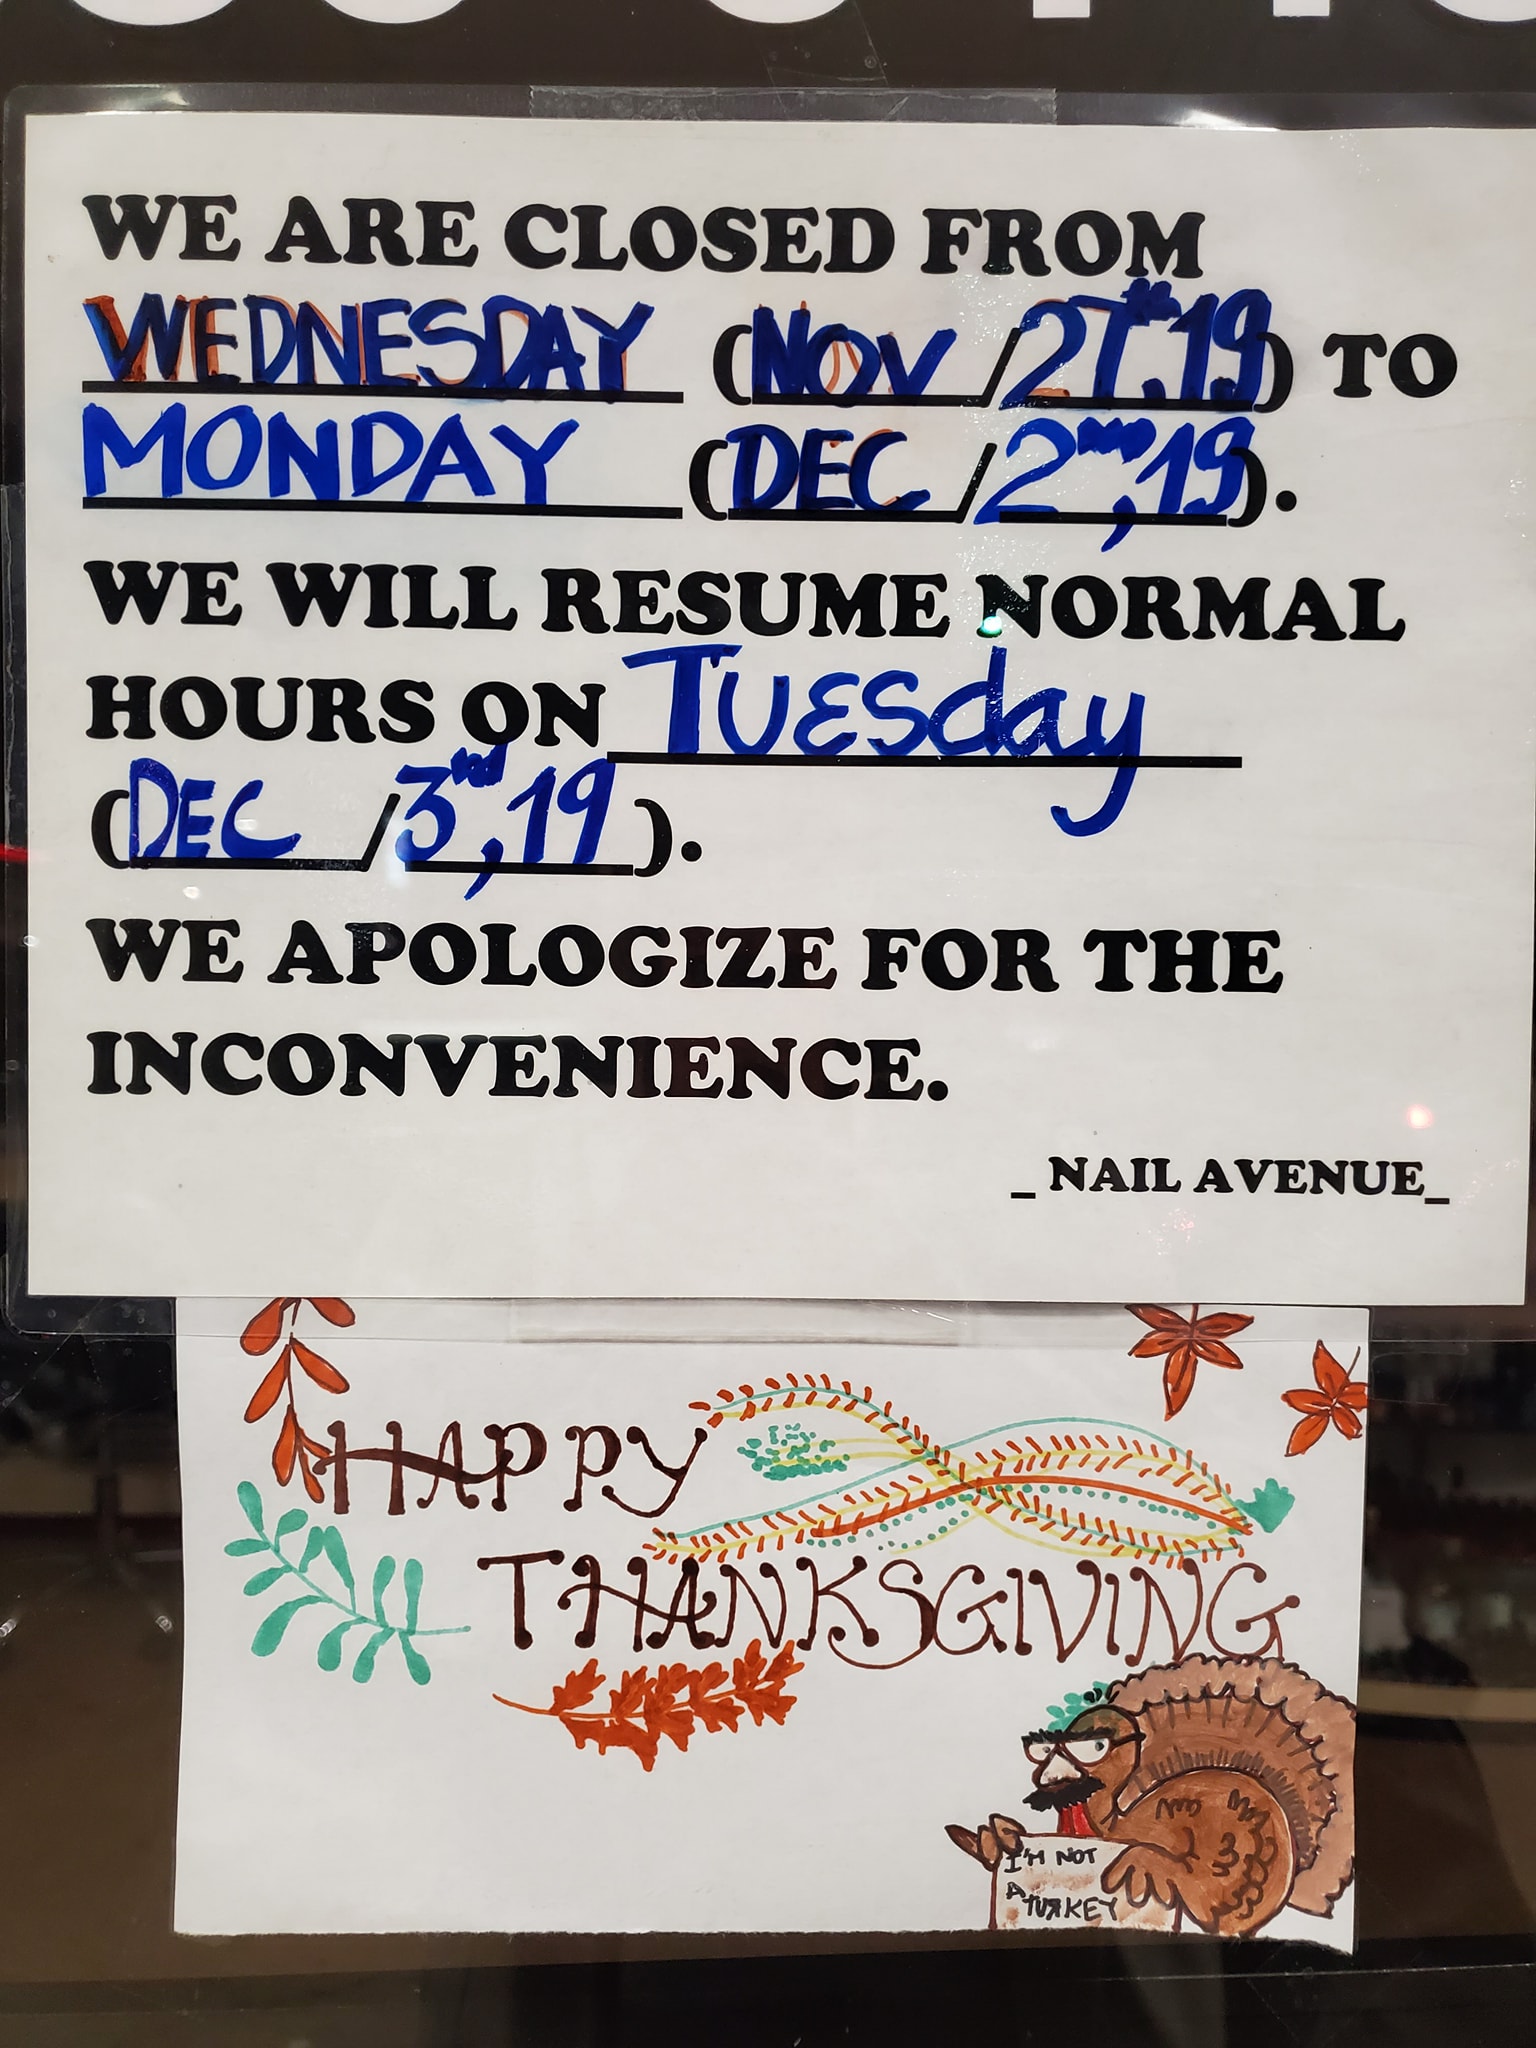 WE ARE CLOSED FROM
WEDNESDAY (NOV / 27th, 19) TO
MONDAY (DEC / 2nd, 19).
WE WILL RESUME NORMAL
HOURS ON Tuesday
(DEC / 3rd, 19).
WE APOLOGIZE FOR THE
INCONVENIENCE.
_ NAIL AVENUE_
HAPPY
THANKSGIVING
I'M NOT
A TURKEY